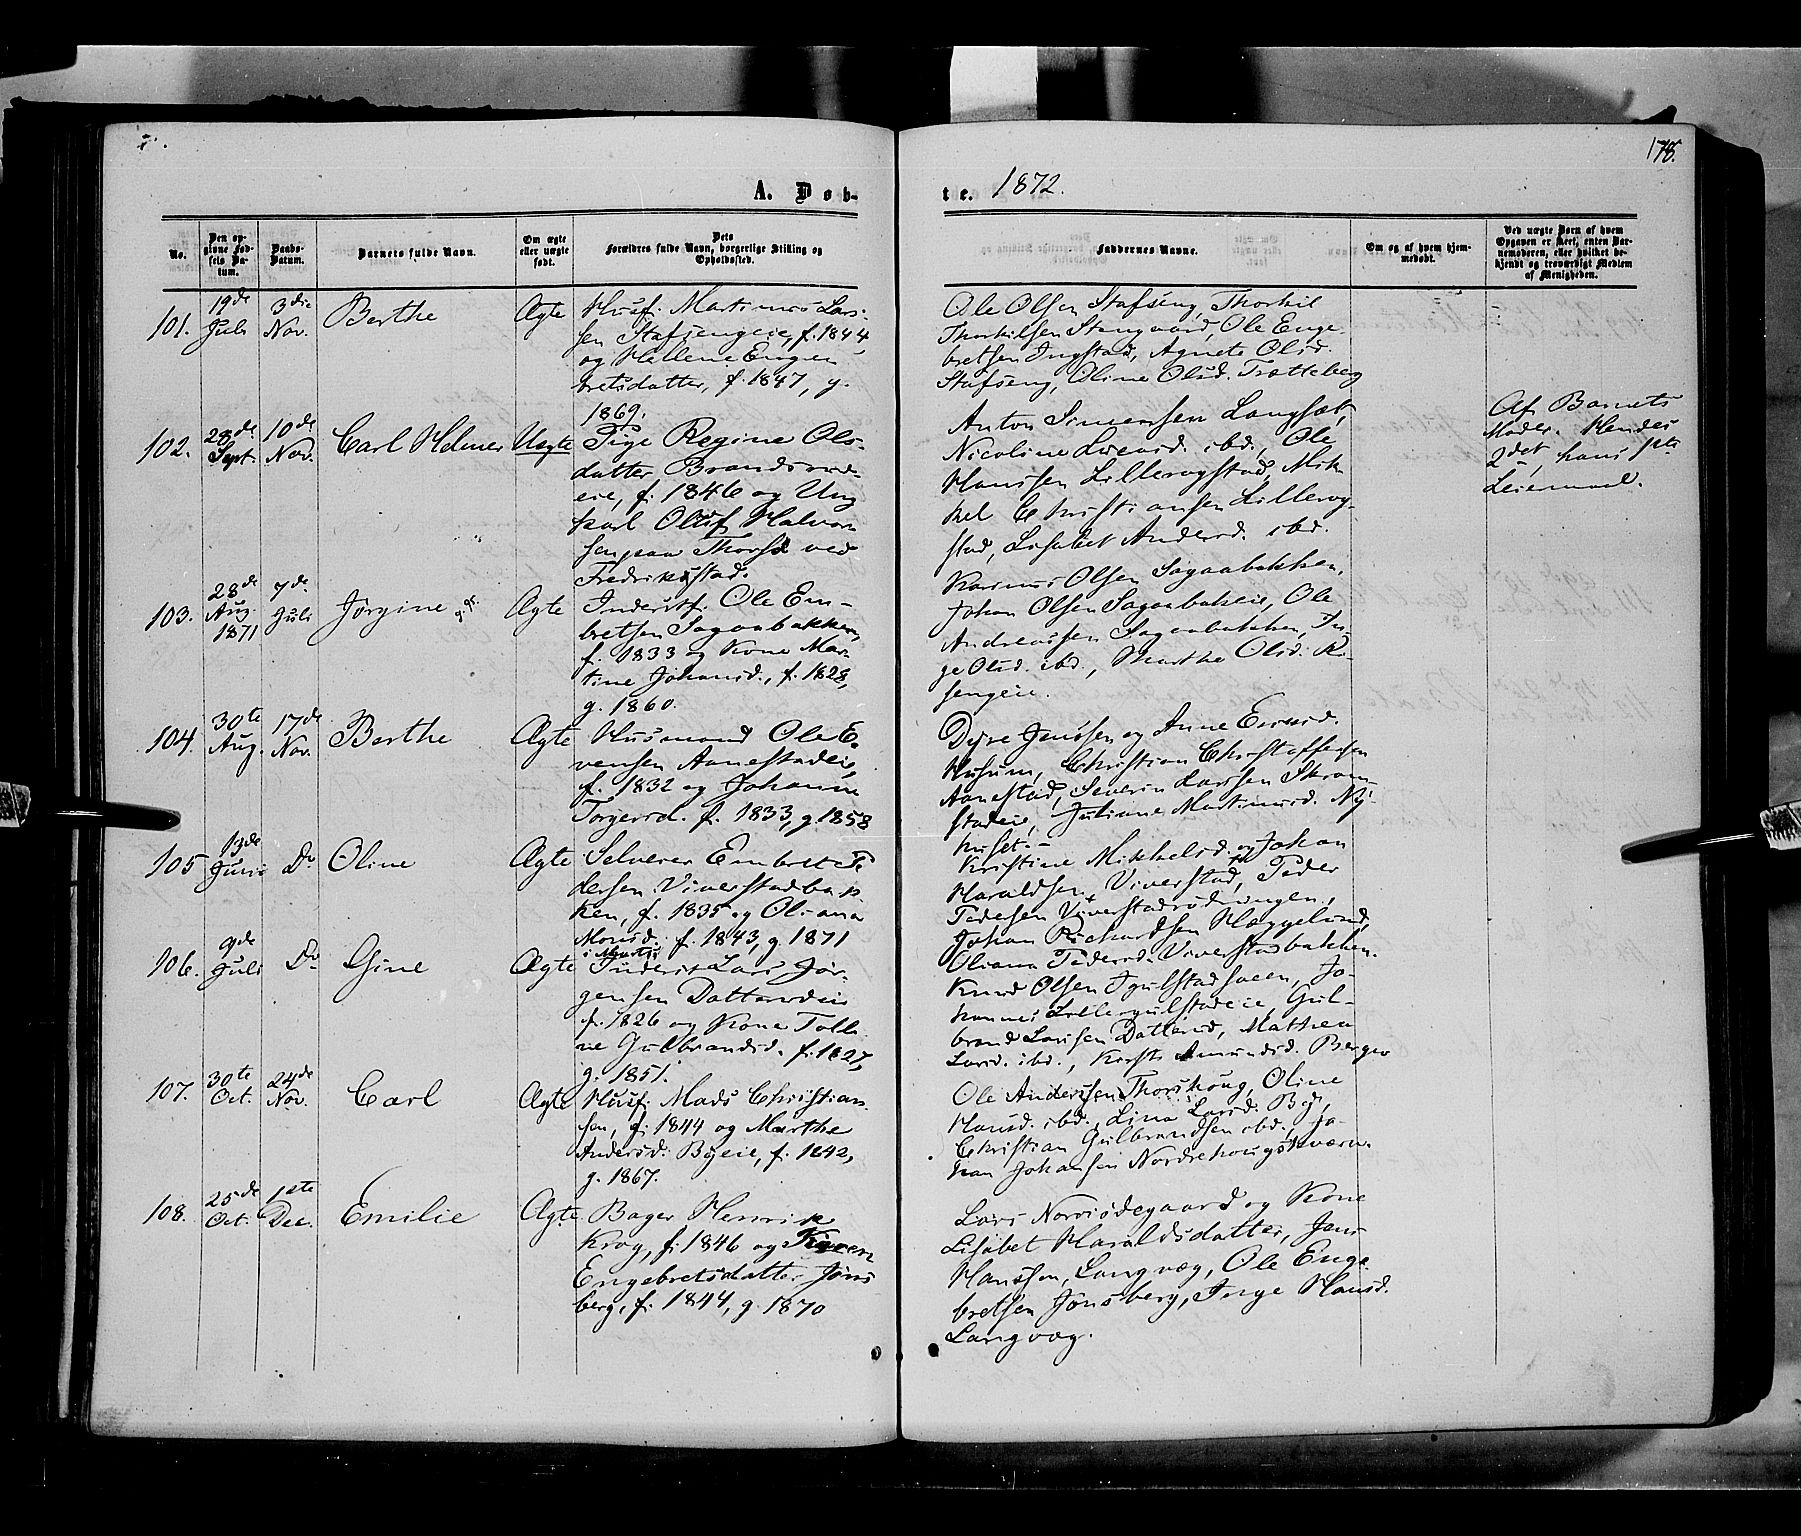 178.
A. Døb-
te. 1872.
No.
Den opgivne Fødsels Datum.
Daabs-Datum.
Barnets fulde Navn.
Om ægte eller uægte født.
Dets Forældres fulde Navn, borgerlige Stilling og Opholdssted.
Faddernes Navne.
Om og af hvem hjemmedøbt.
Ved uægte Børn af hvem Opgaven er skeet, enten Barnemoderen, eller hvilket bekjendt og troværdigt Medlem af Menigheden.
101. 19de Juli 3die Nov. Berthe Ægte
Husf. Martinus Lars-
sen Stafsengeie, f. 1844,
og Hellene Engen
bretsdatter, f. 1847, g.
1869.
Ole Olsen Stafseng, Thorkil
Thorkilsen Stangaard, Ole Enge-
bretsen Ingstad, Agnete Olsd.
Stafseng, Oline Olsd. Trætteberg
102. 28de Sept. 10de Nov. Carl Helmer Uægte
Pige Regine Ols-
datter Brandsrud-
eie, f. 1846 og Ung
karl Oluf Halvor
sen paa Thorsø ved
Fredrikstad.
Anton Simensen Langsæt,
Nicoline ibd., Ole
Hanssen Lillerogstad, Mik-
kel Christiansen Lillerog-
stad, Lisabet Andersd. ibd.
Af Barnets
Moder. Hendes
2det, hans 1ste
Leiermaal.
103. 28de Aug. 1871 7de Juli Jørgine Ægte
Inderstf. Ole Em-
bretsen Sagaabakken,
f. 1833 og Kone Mar-
tine Johansd., f. 1828,
g. 1860.
Rasmus Olsen Sagaabakken,
Johan Olsen Sagaabakeie, Ole
Andreassen Sagaabakken, In-
ge Olsd. ibd., Marthe Olsd. Ri-
sengeie.
104. 30te Aug. 17de Nov. Berthe Ægte
Husmand Ole E-
vensen Aanestadeie,
f. 1832 og Johanne
Torgersd. f. 1833, g. 1858
Dyre Jenssen og Anne Evensd.
Husum, Christian Christoffersen
Aanestad, Severin Larssen Skram-
stadeie, Juliane Martinusd. Ny-
huset.
105 13de Juni Do Oline Ægte
Selveier Embret Pe
dersen Viverstadbak
ken, f. 1835 og Oliana
Monsd. f. 1843, g. 1871
i Marts
Kristine Mikkelsd. og Johan
Haraldsen, Viverstad, Peder
Pedersen Viverstadrødningen,
Johan Richardsen Hæggelund,
Oliana Pedersd. Viverstadbakken.
106. 9de Juli Do Gine Ægte
Inderst Lars Jør-
gensen Dattærudeie
f. 1826 og Kone Toll
ne Gulbrandsd. f. 1827,
g. 1851.
Knud Olsen Igulstadsveen, Jo-
hannes Lilleigulstadeie, Gul-
brand Larssen Dattærud, Mathea
Larsd. ibd., Kirsti Amundsd. Berger
107. 30te Oct. 24de Nov. Carl Ægte
Husf. Mads Christian-
sen, f. 1844 og Marthe
Andersd. Byeie, f. 1842,
g. 1867.
Ole Anderssen Thorshoug, Oline
Hansd. ibd., Lina Larsd. By,
Christian Gulbrandsen ibd., Jo-
han Johansen Nordrehougskværn.
108. 25de Oct. 1ste Dec. Emilie Ægte
Bager Henrik
Krog, f. 1846 og Karen
Engebretsdatter Jøns
berg, f. 1844, g. 1870
Lars Nordsødegaard og Kone
Lisabet Haraldsdatter, Jens
Hanssen, Langvæg, Ole Enge-
bretsen Jønsberg, Inge Hansd.
Langvæg.